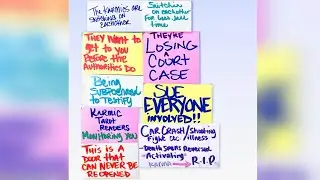 THE KARMICS ARE
SNITCHING ON
EACHOTHER
Snitches
on eachother
for less jail
time
THEY WANT to
get to you
BEFORE the
Authorities DO
THEY'RE
LOSING
A COURT
CASE
Being
Subpoenaed
to testify
SUE
EVERYONE
INVOLVED!!
KARMIC
TAROT
READERS
MONITORING YOU
CAR CRASH/Shooting
Fight etc illness
-Death spells Reversed
-Activating-
KARMA → R.I.P
THIS IS A
DOOR THAT
CAN NEVER BE
REOPENED